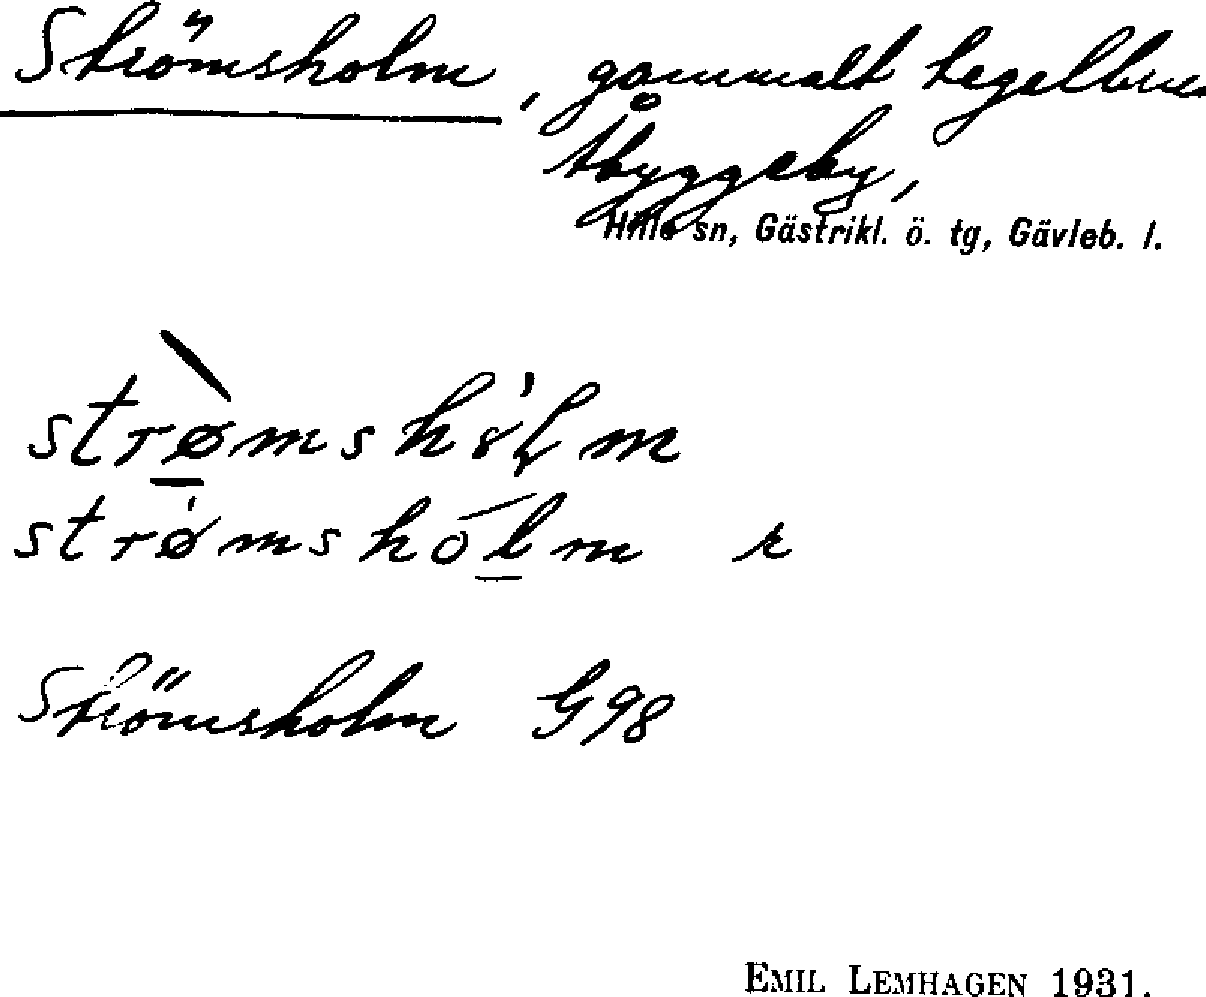 Strömsholm, gammalt tegelbruk
Åbyggeby,
Hille sn, Gästrikl. ö. tg, Gävleb. l.
strømshólm
strømshólm r
Strömsholm G98
EMIL LEMHAGEN 1931.